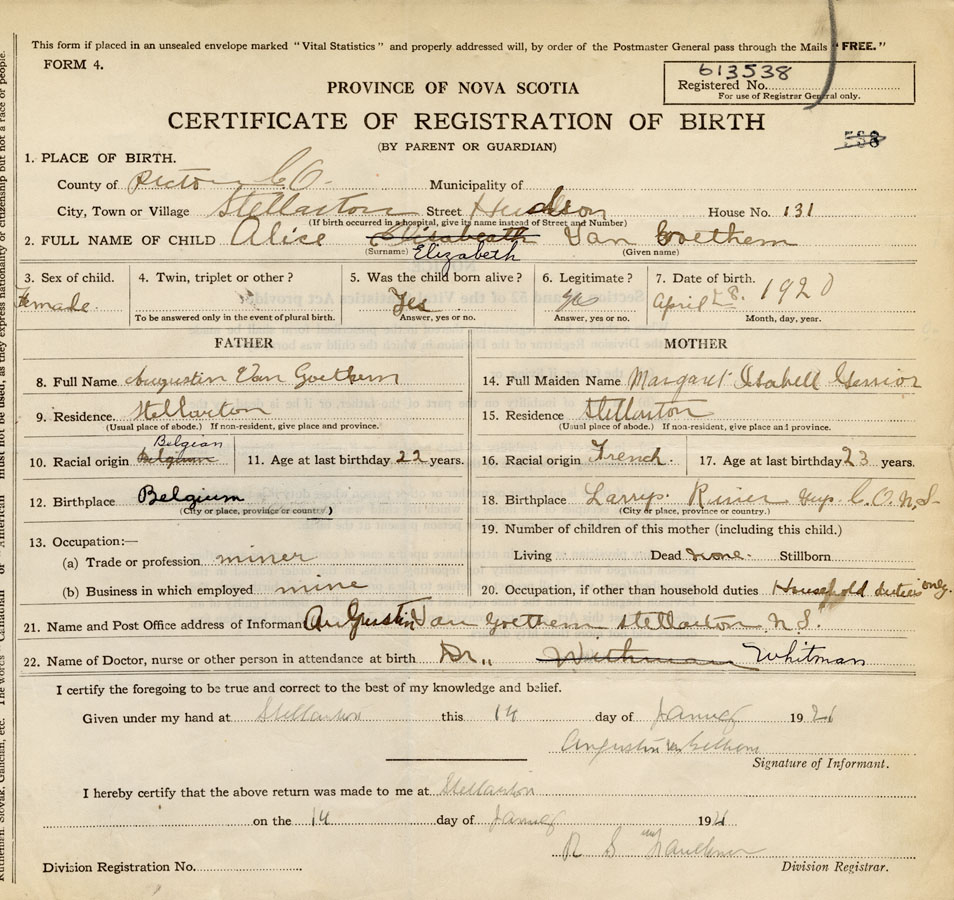 This form if placed in an unsealed envelope marked "Vital Statistics" and properly addressed will, by order of the Postmaster General pass through the Mails "FREE."
FORM 4.
613538
Registered No.
For use of Registrar General only.
PROVINCE OF NOVA SCOTIA
CERTIFICATE OF REGISTRATION OF BIRTH
(BY PARENT OR GUARDIAN)
1. PLACE OF BIRTH.
County of Pictou CO. Municipality of
City, Town or Village Stellarton Street Hudson House No. 131
(If birth occurred in a hospital, give its name instead of Street and Number)
2. FULL NAME OF CHILD Alice Elisabeath Van Goethem
(Surname) Elizabeth (Given name)
3. Sex of child. 4. Twin, triplet or other? 5. Was the child born alive? 6. Legitimate? 7. Date of birth.
Female Yes yes April 28. 1920
To be answered only in the event of plural birth. Answer, yes or no. Answer, yes or no. Month, day, year.
FATHER
8. Full Name Augustin Van Goethem
9. Residence. Stellarton
(Usual place of abode.) If non-resident, give place and province.
Belgian
10. Racial origin Belgium 11. Age at last birthday 22 years.
12. Birthplace Belgium
(City or place, province or country.)
13. Occupation:—
(a) Trade or profession miner
(b) Business in which employed mine
MOTHER
14. Full Maiden Name Margaret Isabell Gerrior
15. Residence Stellarton
(Usual place of abode.) If non-resident, give place and province.
16. Racial origin French. 17. Age at last birthday 23 years.
18. Birthplace Larrys River Guys. C.O. N.S.
(City or place, province or country.)
19. Number of children of this mother (including this child.)
Living Dead none. Stillborn
20. Occupation, if other than household duties Household duties only.
21. Name and Post Office address of Informant Augustin Van Goethem Stellarton N.S.
22. Name of Doctor, nurse or other person in attendance at birth Dr., Withman Whitman
I certify the foregoing to be true and correct to the best of my knowledge and belief.
Given under my hand at Stellarton this 14 day of 1921
Augustin
Signature of Informant.
I hereby certify that the above return was made to me at Stellarton
on the 14 day of 1921
R S Faulkner
Division Registrar.
Division Registration No.